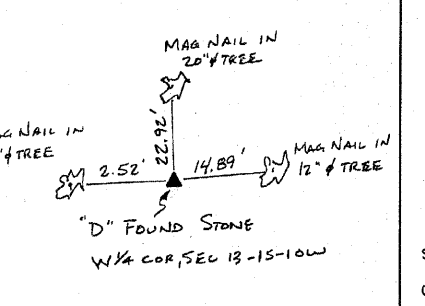 MAG NAIL IN
20"ϕ TREE
22.92'
AG NAIL IN
"ϕ TREE
2.52'
14.89'
MAG NAIL IN
12" ϕ TREE
"D" FOUND STONE
W 1/4 COR, SEC 13-15-10W